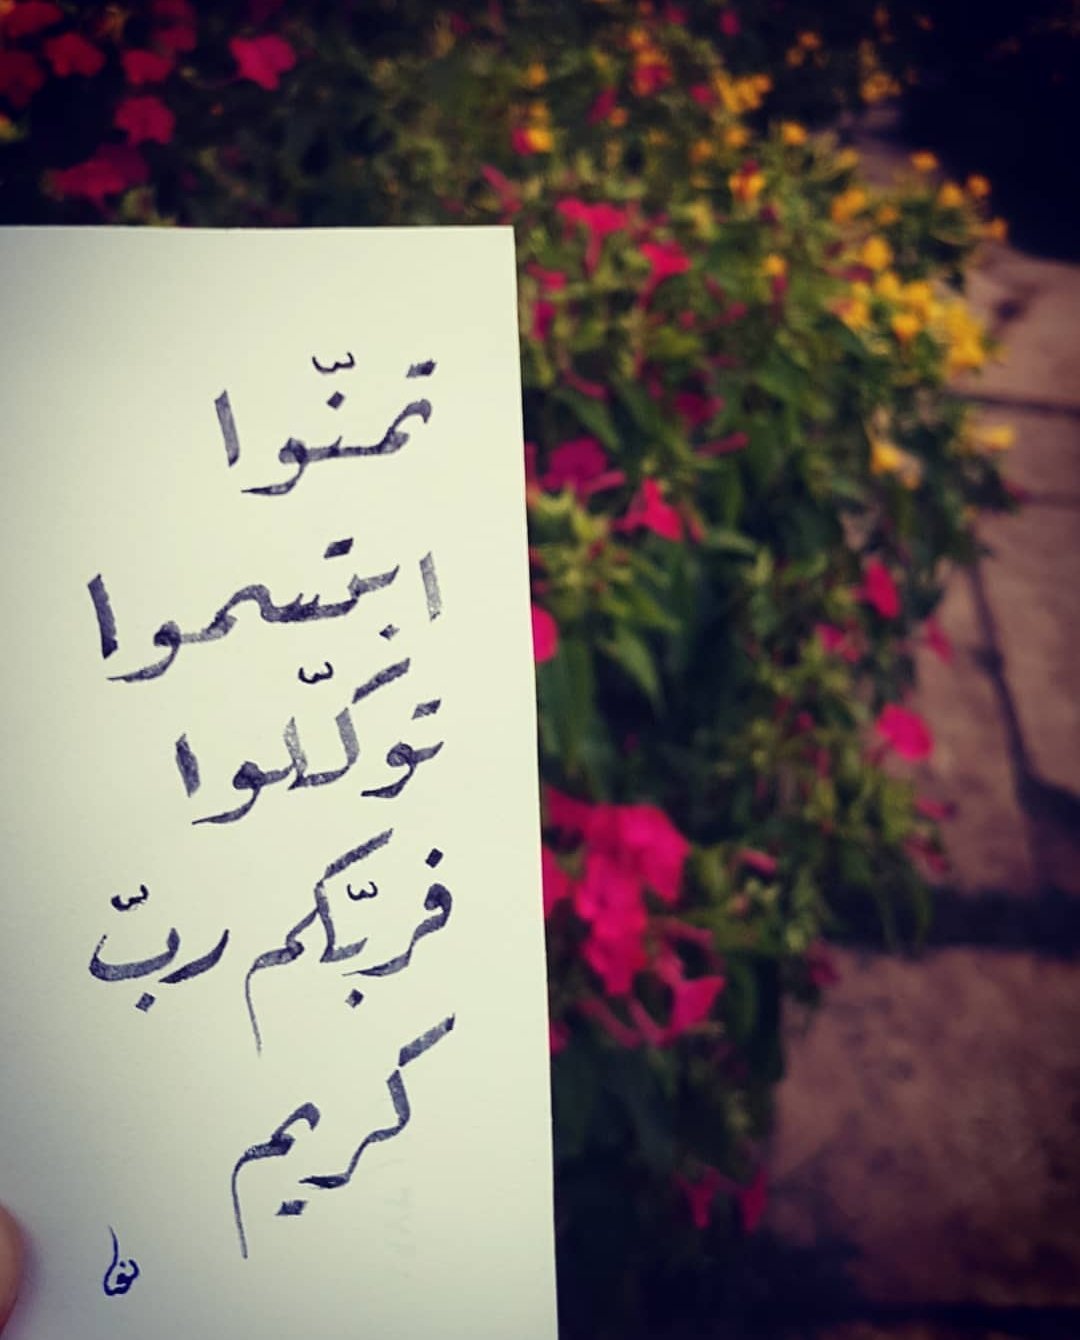 تمنّوا
ابتسموا
توكّلوا
فربّكم ربّ
كريم